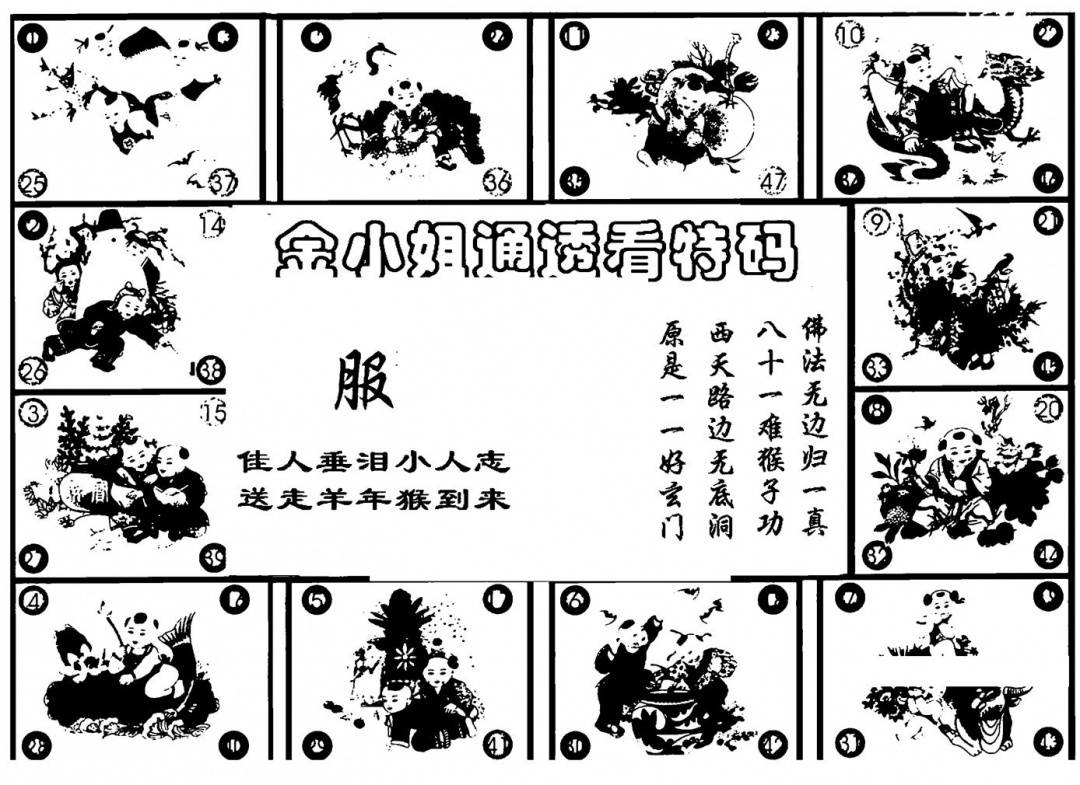 10
25
37
36
47
金小姐通透看特码
2
14
9
21
26
38
33
服
佛法无边归一真
八十一难猴子功
西天路边无底洞
原是一一好玄门
佳人垂泪小人志
送走羊年猴到来
3
15
8
20
27
39
32
44
4
5
6
7
28
29
41
30
42
31
43